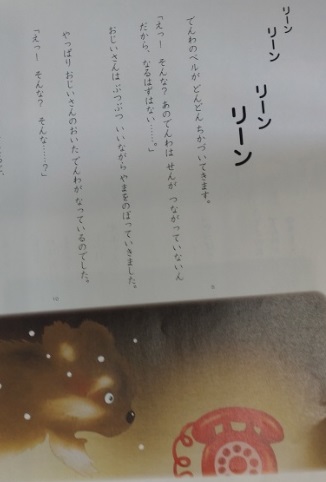 リーン
リーン
リーン
リーン
でんわのベルが どんどん ちかづいてきます。
「えっー そんな? あのでんわは せんが つながっていないん
だから、なるはずはない……。」
おじいさんは ぶつぶつ いいながら やまをのぼっていきました。
やっぱり おじいさんのおいた でんわが なっているのでした。
「えっー そんな? そんな……?」